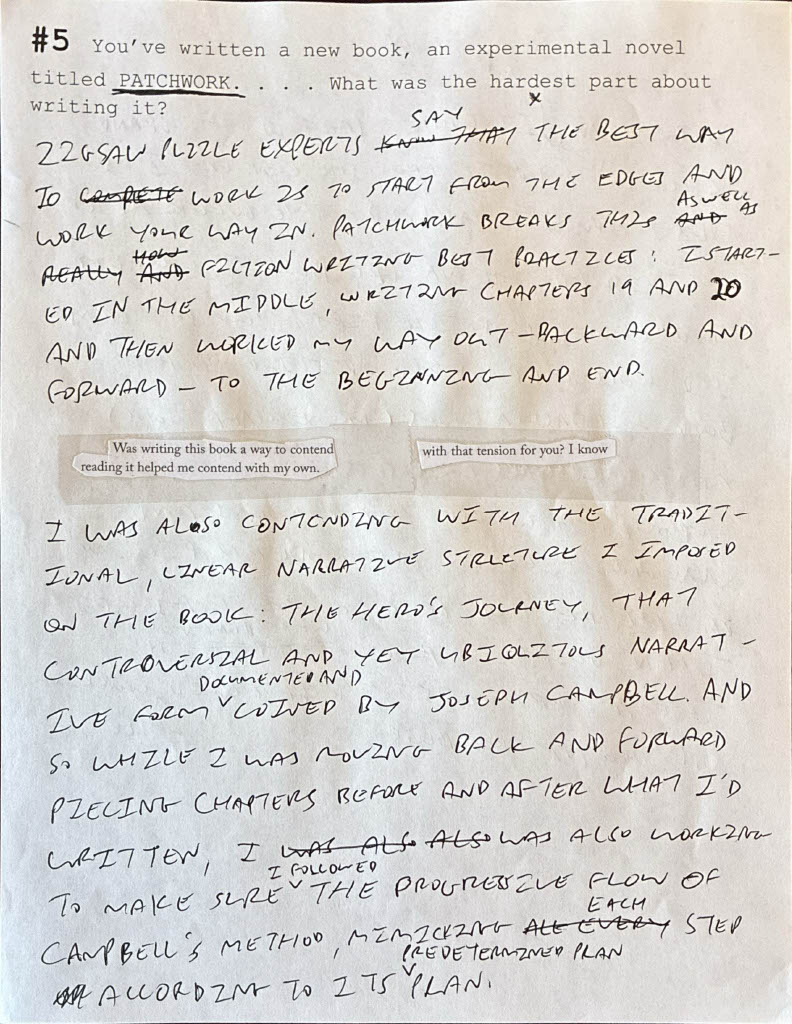 #5 You've written a new book, an experimental novel
titled PATCHWORK. . . . What was the hardest part about
writing it?
x
SAY
JIGSAW PUZZLE EXPERTS KNOW THAT THE BEST WAY
TO COMPETE WORK IS TO START FROM THE EDGES AND
AS WELL
WORK YOUR WAY IN. PATCHWORK BREAKS THIS AND AS
HOW
REALLY AND FICTION WRITING BEST PRACTICES: I START-
ED IN THE MIDDLE, WRITING CHAPTERS 19 AND 20
AND THEN WORKED MY WAY OUT – BACKWARD AND
FORWARD – TO THE BEGINNING AND END.
Was writing this book a way to contend with that tension for you? I know
reading it helped me contend with my own.
I WAS ALSO CONTENDING WITH THE TRADIT-
IONAL, LINEAR NARRATIVE STRUCTURE I IMPOSED
ON THE BOOK: THE HERO'S JOURNEY, THAT
CONTROVERSIAL AND YET UBIQUITOUS NARRAT-
DOCUMENTED AND
IVE FORM COINED BY JOSEPH CAMPBELL. AND
SO WHILE I WAS MOVING BACK AND FORWARD
PIECING CHAPTERS BEFORE AND AFTER WHAT I'D
WRITTEN, I WAS ALSO ALSO WAS ALSO WORKING
I FOLLOWED
TO MAKE SURE THE PROGRESSIVE FLOW OF
EACH
CAMPBELL'S METHOD, MIMICKING ALL EVERY STEP
PREDETERMINED PLAN
ACCORDING TO ITS PLAN.